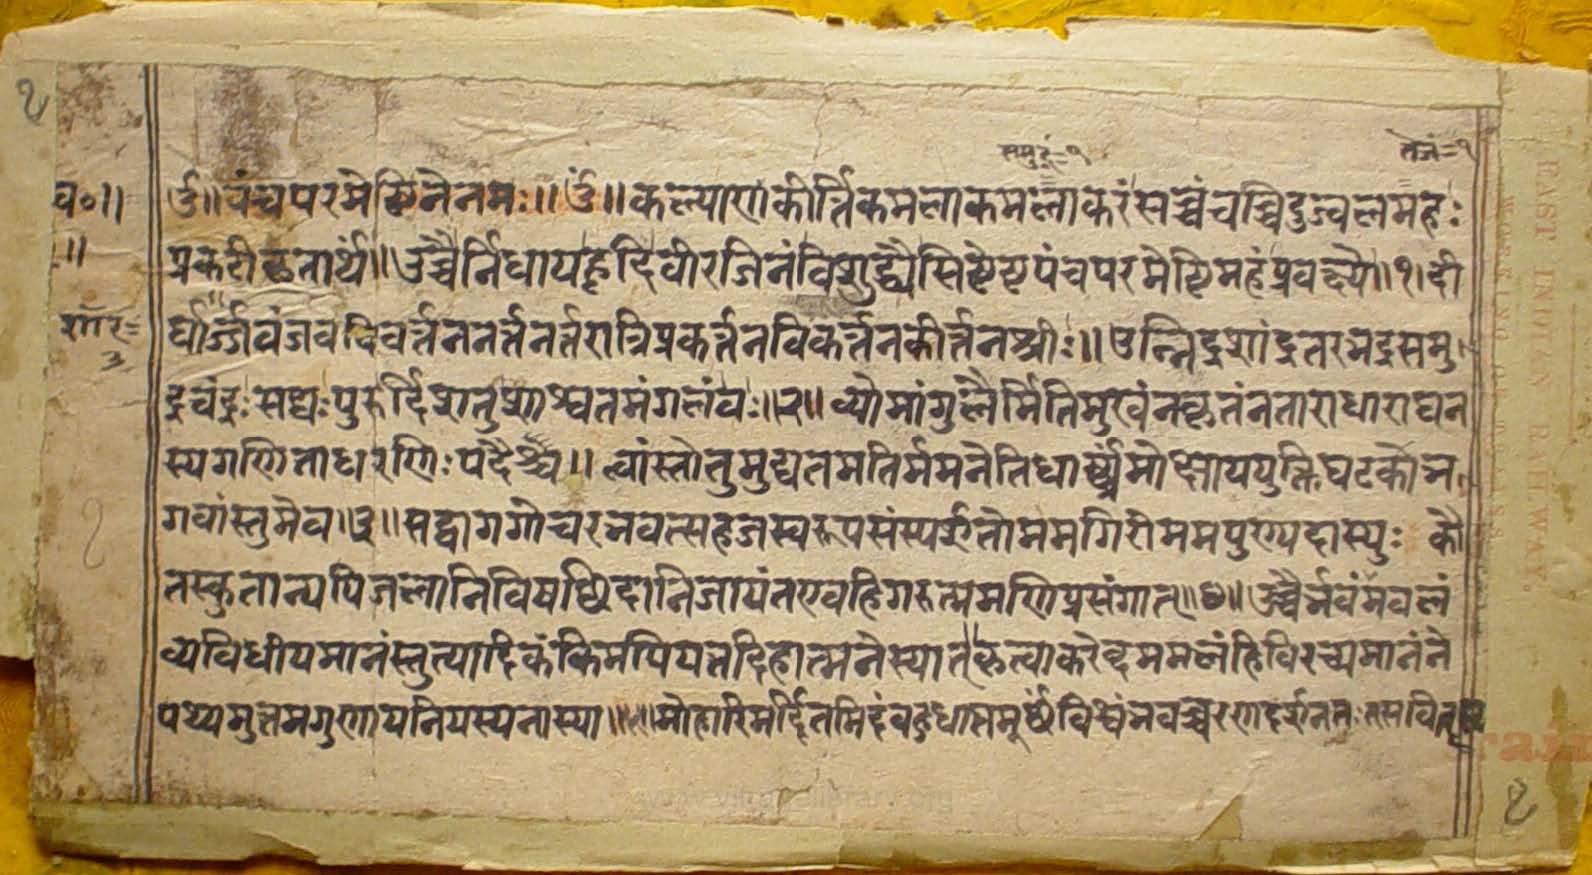 समुद्रं=१ तेजं=१
१
च०॥ ॐ॥ पंचपरमेष्ठिनेनमः॥ ॐ॥ कल्याणकीर्त्तिकमलाकमलाकरंसच्चंचच्चिदुज्वलमहः
॥ प्रकटीकृतार्थं॥ उच्चैर्निधायहृदिवीरजिनंविशुद्ध्यैसिष्टेष्टपंचपरमेष्टिमहंप्रवक्ष्ये॥१।दी
र्घार्ज्जवंजवविवर्त्तननर्त्तनर्त्तरात्रिप्रकर्त्तनविकर्त्तनकीर्त्तनश्रीः॥ उन्निद्रशांद्रतरभद्रसमु
द्रचंद्रः सद्यः पुरुर्दिशतुशाश्वतमंगलंवः॥२॥ व्योमांगुलैर्मितिमुखंनकृतंनताराधाराघन
स्यगणिताधरणिः पदैश्च॥ त्वांस्तोतुमुद्यतमतिर्ममनेतिधार्ष्ट्यंमोक्षाययुक्तिघटकोभ
गवांस्तुमेव॥३॥ सद्वागगोचरभवत्सहजस्वरूपसंस्पर्शतोममगिरोममपुण्यदास्युः कौ
तस्कुतान्यपिजलानिविषछिदानिजायंतएवहिगरुत्ममणिप्रसंगात्॥४॥ उच्चैर्भवंमवलं
व्यविधीयमानंस्तुत्यादिकंकिमपियत्तदिहात्मनेस्यात् कृत्वाकरेद्दममलंहिविरच्यमानंने
पथ्यमुत्तमगुणायनियस्यनास्या॥५॥मोहारिमर्दितमिदंवक्रुधासमूर्छंविश्वंभवच्चरणदर्शनतः
EAST INDIAN RAILWAY.
www.vitragelibrary.org
१